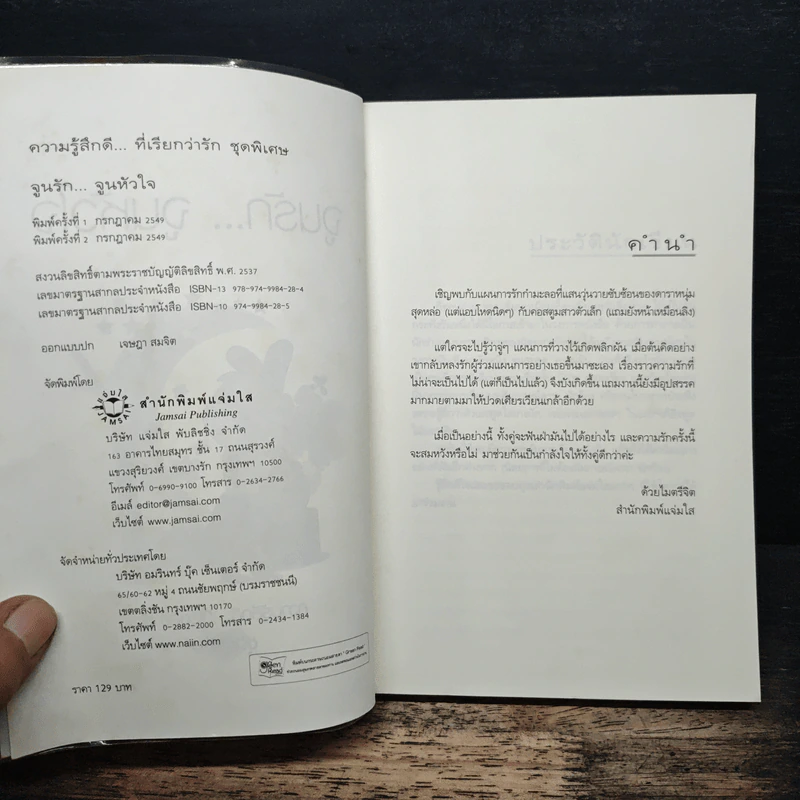 ความรู้สึกดี... ที่เรียกว่ารัก ชุดพิเศษ
จูนรัก... จูนหัวใจ
พิมพ์ครั้งที่ 1 กรกฎาคม 2549
พิมพ์ครั้งที่ 2 กรกฎาคม 2549
สงวนลิขสิทธิ์ตามพระราชบัญญัติลิขสิทธิ์ พ.ศ. 2537
เลขมาตรฐานสากลประจำหนังสือ ISBN-13 978-974-9984-28-4
เลขมาตรฐานสากลประจำหนังสือ ISBN-10 974-9984-28-5
ออกแบบปก เจษฎา สมจิต
จัดพิมพ์โดย
สำนักพิมพ์แจ่มใส
Jamsai Publishing
บริษัท แจ่มใส พับลิชชิ่ง จำกัด
163 อาคารไทยสมุทร ชั้น 17 ถนนสุรวงศ์
แขวงสุริยวงศ์ เขตบางรัก กรุงเทพฯ 10500
โทรศัพท์ 0-6990-9100 โทรสาร 0-2634-2766
อีเมล์ editor@jamsai.com
เว็บไซต์ www.jamsai.com
จัดจำหน่ายทั่วประเทศโดย
บริษัท อมรินทร์ บุ๊ค เซ็นเตอร์ จำกัด
65/60-62 หมู่ 4 ถนนชัยพฤกษ์ (บรมราชชนนี)
เขตตลิ่งชัน กรุงเทพฯ 10170
โทรศัพท์ 0-2882-2000 โทรสาร 0-2434-1384
เว็บไซต์ www.naiin.com
Green Read
ราคา 129 บาท
คำนำ
เชิญพบกับแผนการรักกำมะลอที่แสนวุ่นวายซับซ้อนของดาราหนุ่ม
สุดหล่อ (แต่แอบโหดนิดๆ) กับคอสตูมสาวตัวเล็ก (แถมยังหน้าเหมือนลิง)
แต่ใครจะไปรู้ว่าจู่ๆ แผนการที่วางไว้เกิดพลิกผัน เมื่อต้นคิดอย่าง
เขากลับหลงรักผู้ร่วมแผนการอย่างเธอขึ้นมาซะเอง เรื่องราวความรักที่
ไม่น่าจะเป็นไปได้ (แต่ก็เป็นไปแล้ว) จึงบังเกิดขึ้น แถมงานนี้ยังมีอุปสรรค
มากมายตามมาให้ปวดเศียรเวียนเกล้าอีกด้วย
เมื่อเป็นอย่างนี้ ทั้งคู่จะฟันฝ่ามันไปได้อย่างไร และความรักครั้งนี้
จะสมหวังหรือไม่ มาช่วยกันเป็นกำลังใจให้ทั้งคู่ดีกว่าค่ะ
ด้วยไมตรีจิต
สำนักพิมพ์แจ่มใส